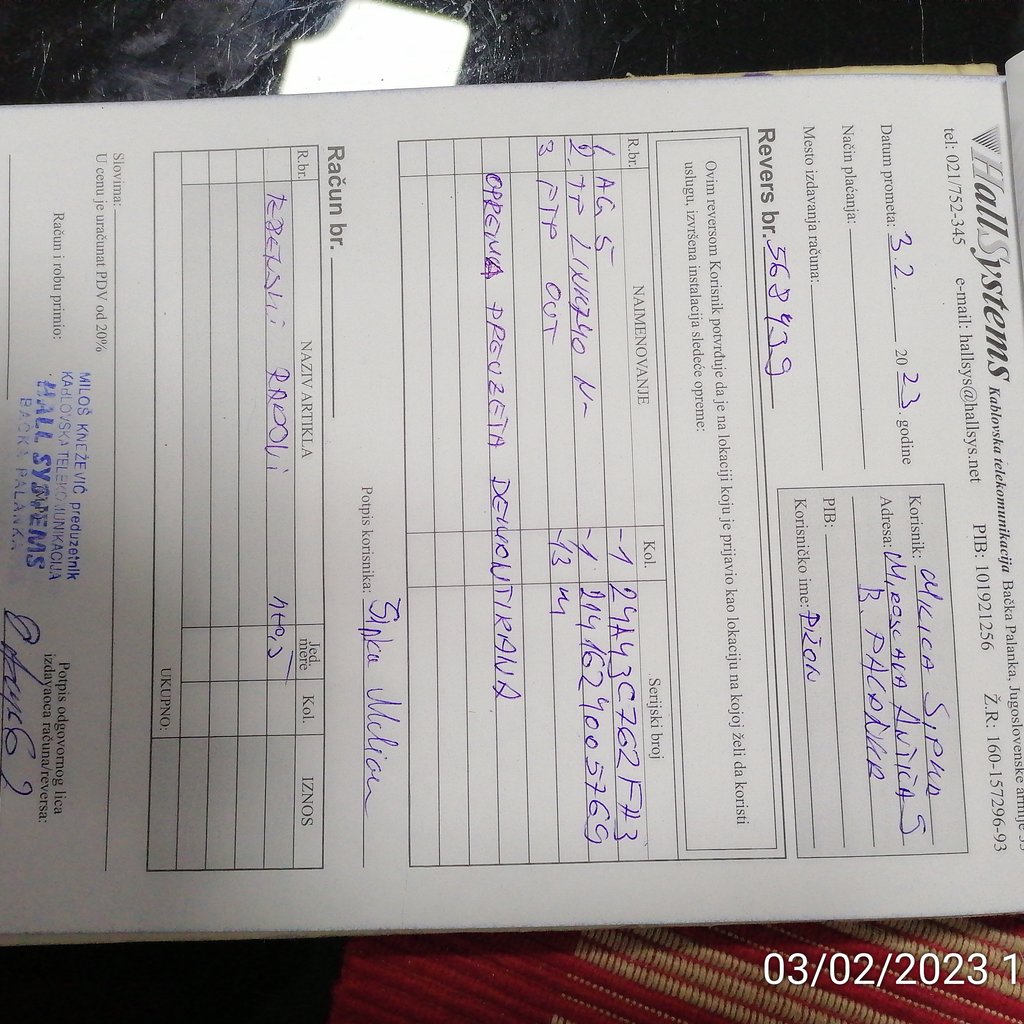 HallSystems Kablovska telekomunikacija Bačka Palanka, Jugoslovenske armije
tel: 021/752-345 e-mail: hallsys@hallsys.net PIB: 101921256 Ž.R: 160-157296-93
Datum prometa: 3.2. 2023. godine
Način plaćanja:
Mesto izdavanja računa:
Korisnik: MILICA SIPKA
Adresa: MIROSLAVA ANTIĆA 5
B. PALANKA
PIB:
Korisničko ime:
Revers br. 368439
Ovim reversom Korisnik potvrđuje da je na lokaciji koju je prijavio kao lokaciju na kojoj želi da koristi
uslugu, izvršena instalacija sledeće opreme:
R.br. NAIMENOVANJE Kol. Serijski broj
1 AG 5 -1 24A43C762FA3
2. TP LINK 740 N- -1. 2141624005769
3 FTP OUT -13 m
OPREMA PREUZETA DEMONTIRANA
Potpis korisnika: Šipka
Račun br.
R.br. NAZIV ARTIKLA Jed. mere Kol. IZNOS
TERENSKI RADOVI
UKUPNO:
Slovima:
U cenu je uračunat PDV od 20%
Račun i robu primio:
Potpis odgovornog lica
izdavaoca računa/reversa:
MILOŠ KNEŽEVIĆ preduzetnik
KABLOVSKA TELEKOMUNIKACIJA
HALL SYSTEMS
BAČKA PALANKA
03/02/2023 1